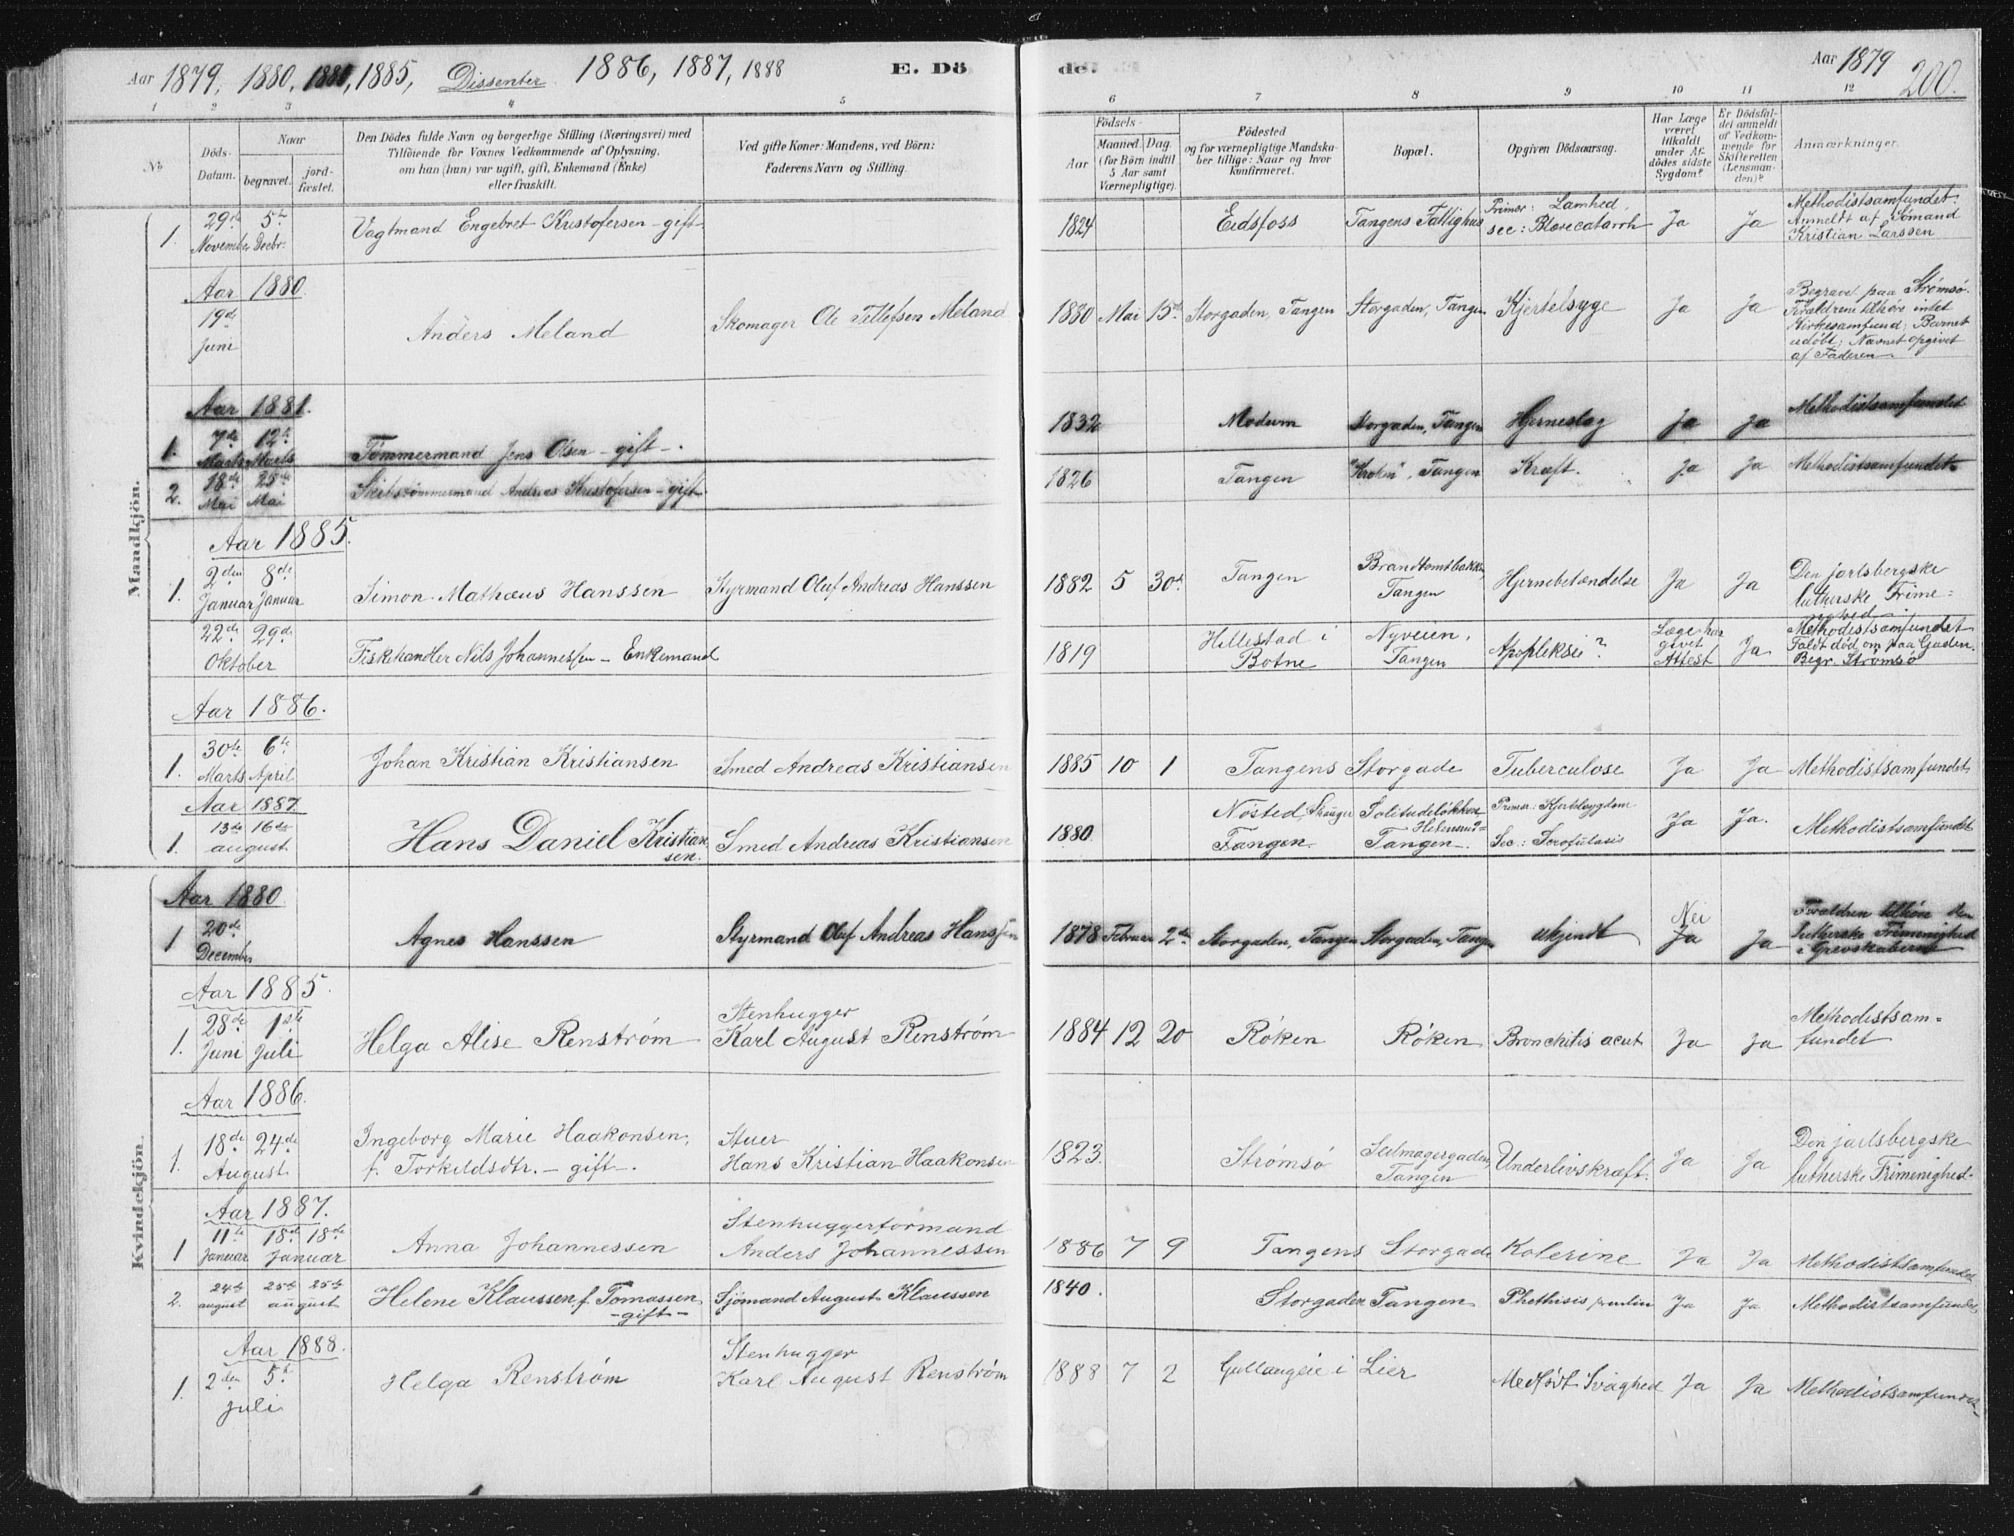 Aar 1879, 1880, 1881, 1885, Dissenter 1886, 1887, 1888
E. Dö
de.
Aar 1879
200.
1 2 3 4 5 6 7 8 9 10 11 12
No
Döds-
Datum.
Naar
begravet.
jord-
fæstet.
Den Dödes fulde Navn og borgerlige Stilling (Næringsvei) med
Tilföiende for Voxnes Vedkommende af Oplysning,
om han (hun) var ugift, gift, Enkemand (Enke)
eller fraskilt.
Ved gifte Koner: Mandens, ved Börn:
Faderens Navn og Stilling.
Födsels-
Aar
Maaned. Dag.
(for Börn indtil
5 Aar samt
Værnepligtige).
Födested
og for værnepligtige Mandska-
ber tillige: Naar og hvor
konfirmeret.
Bopæl.
Opgiven Dödsaarsag.
Har Læge
været
tilkaldt
under Af-
dödes sidste
Sygdom?
Er Dödsfal-
det anmeldt
af Vedkom-
mende for
Skifteretten
(Lensman-
den)?
Anmærkninger.
Mandkjön.
1. 29de November 5te Decbr. Vagtmand Engebret Kristofersen - gift 1824 Eidsfoss Tangens Fattighus Primær: Lamhed, sec: Blærecatarrh Ja Ja Methodistsamfundet
Anmeldt af Sömand
Kristian Larssen
Aar 1880.
19de Juni Anders Meland Skomager Ole Tellefsen Meland 1880 Mai 15de Storgaden, Tangen Storgaden, Tangen Kjertelsyge Ja Ja Begravet paa Strømsö.
Forældrene tilhøre intet
Kirkesamfund; Barnet
udöbt; Navnet opgivet
af Faderen.
Aar 1881.
1. 7de Marts 12te Marts Tömmermand Jens Olsen - gift - 1832 Modum Storgaden, Tangen Hjerneslag Ja Ja Methodistsamfundet
2. 18de Mai 25de Mai Skibstömmermand Andreas Kristofersen - gift 1826 Tangen "Kroken", Tangen Kræft. Ja Ja Methodistsamfundet
Aar 1885.
1. 2den Januar 8de Januar Simon Mathæus Hanssen Styrmand Oluf Andreas Hanssen 1882 5 30te Tangen Brandtomtbakken, Tangen Hjernebetændelse Ja Ja Den jarlsbergske
lutherske Frime=
nighed.
22de 29de Oktober Fiskehandler Nils Johannessen - Enkemand 1819 Hillestad i Botne Nyveien, Tangen Apopleksi? Læge har givet Attest Ja Methodistsamfundet
Faldt död om paa Gaden.
Begr. Strømsö
Aar 1886.
1. 30te Marts 6te April Johan Kristian Kristiansen Smed Andreas Kristiansen 1885 10 1 Tangens Storgade Tuberculose Ja Ja Methodistsamfundet
Aar 1887.
1. 13de 16de august Hans Daniel Kristiansen. Smed Andreas Kristiansen 1880. Nösted, Skauger Tangen. Solitudelökken Tangen. Primær: Kjertelsygdom Sec.: Scrofulosis Ja Ja. Methodistsamfundet
Kvindekjön.
Aar 1880
1 20de December Agnes Hanssen Styrmand Oluf Andreas Hanssen 1878 Februar 2de Storgaden, Tangen Storgaden, Tangen ukjendt Nei Ja Ja Forældren tilhøre den
lutherske Frimenighed
i Grevskaberne
Aar 1885.
1. 28de Juni 1ste Juli Helga Alise Renström Stenhugger
Karl August Renström 1884 12 20 Röken Röken Bronchitis acut Ja Ja Methodistsam=
fundet
Aar 1886.
1. 18de 24de August Ingeborg Marie Haakonsen,
f. Torkildsdtr. - gift -. Stuer
Hans Kristian Haakonsen 1823. Strømsö Seilmagergaden, Tangen Underlivskræft. Ja Ja Den jarlsbergske
lutherske Frimenighed.
Aar 1887.
1 11te Januar 18de 18de Januar Anna Johannessen Stenhuggerformand
Anders Johannessen 1886 7 9 Tangens Storgade Kolerine Ja Ja Methodistsamfundet
2. 24de august 25de 25de august Helene Klaussen f. Tomassen
- gift - Sjömand August Klaussen 1840. Storgaden Tangen Phethisis Ja Ja Methodistsamfundet
Aar 1888.
1. 2den 5te Juli Helga Renström Stenhugger
Karl August Renström 1888 7 2 Gullaugeie i Lier Medfödt Svaghed Ja Ja Methodistsamfundet